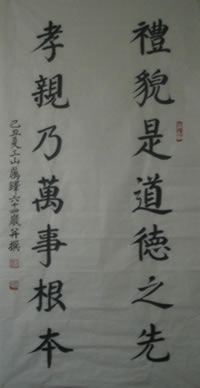 禮貌是道德之先
孝親乃萬事根本
己丑夏工山萬鐸六十四歲並撰